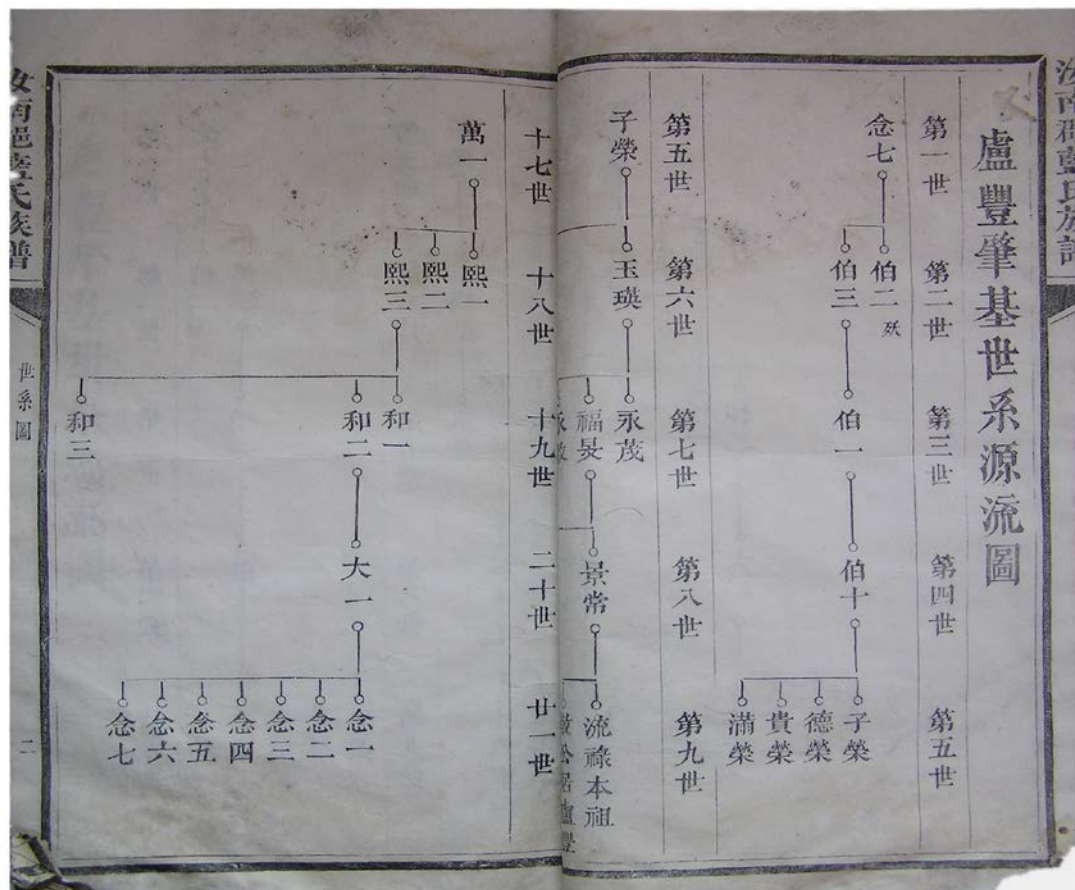 汝南郡藍氏族譜
盧豐肇基世系源流圖
第一世 第二世 第三世 第四世 第五世
念七
伯二 殀
伯三
伯一
伯十
子榮
德榮
貴榮
滿榮
第五世 第六世 第七世 第八世 第九世
子榮
玉瑛
永茂
福旻
景常
流祿本祖
十七世 十八世 十九世 二十世 廿一世
萬一
熙一
熙二
熙三
和一
和二
和三
大一
念一
念二
念三
念四
念五
念六
念七
汝南郡藍氏族譜
世系圖
二